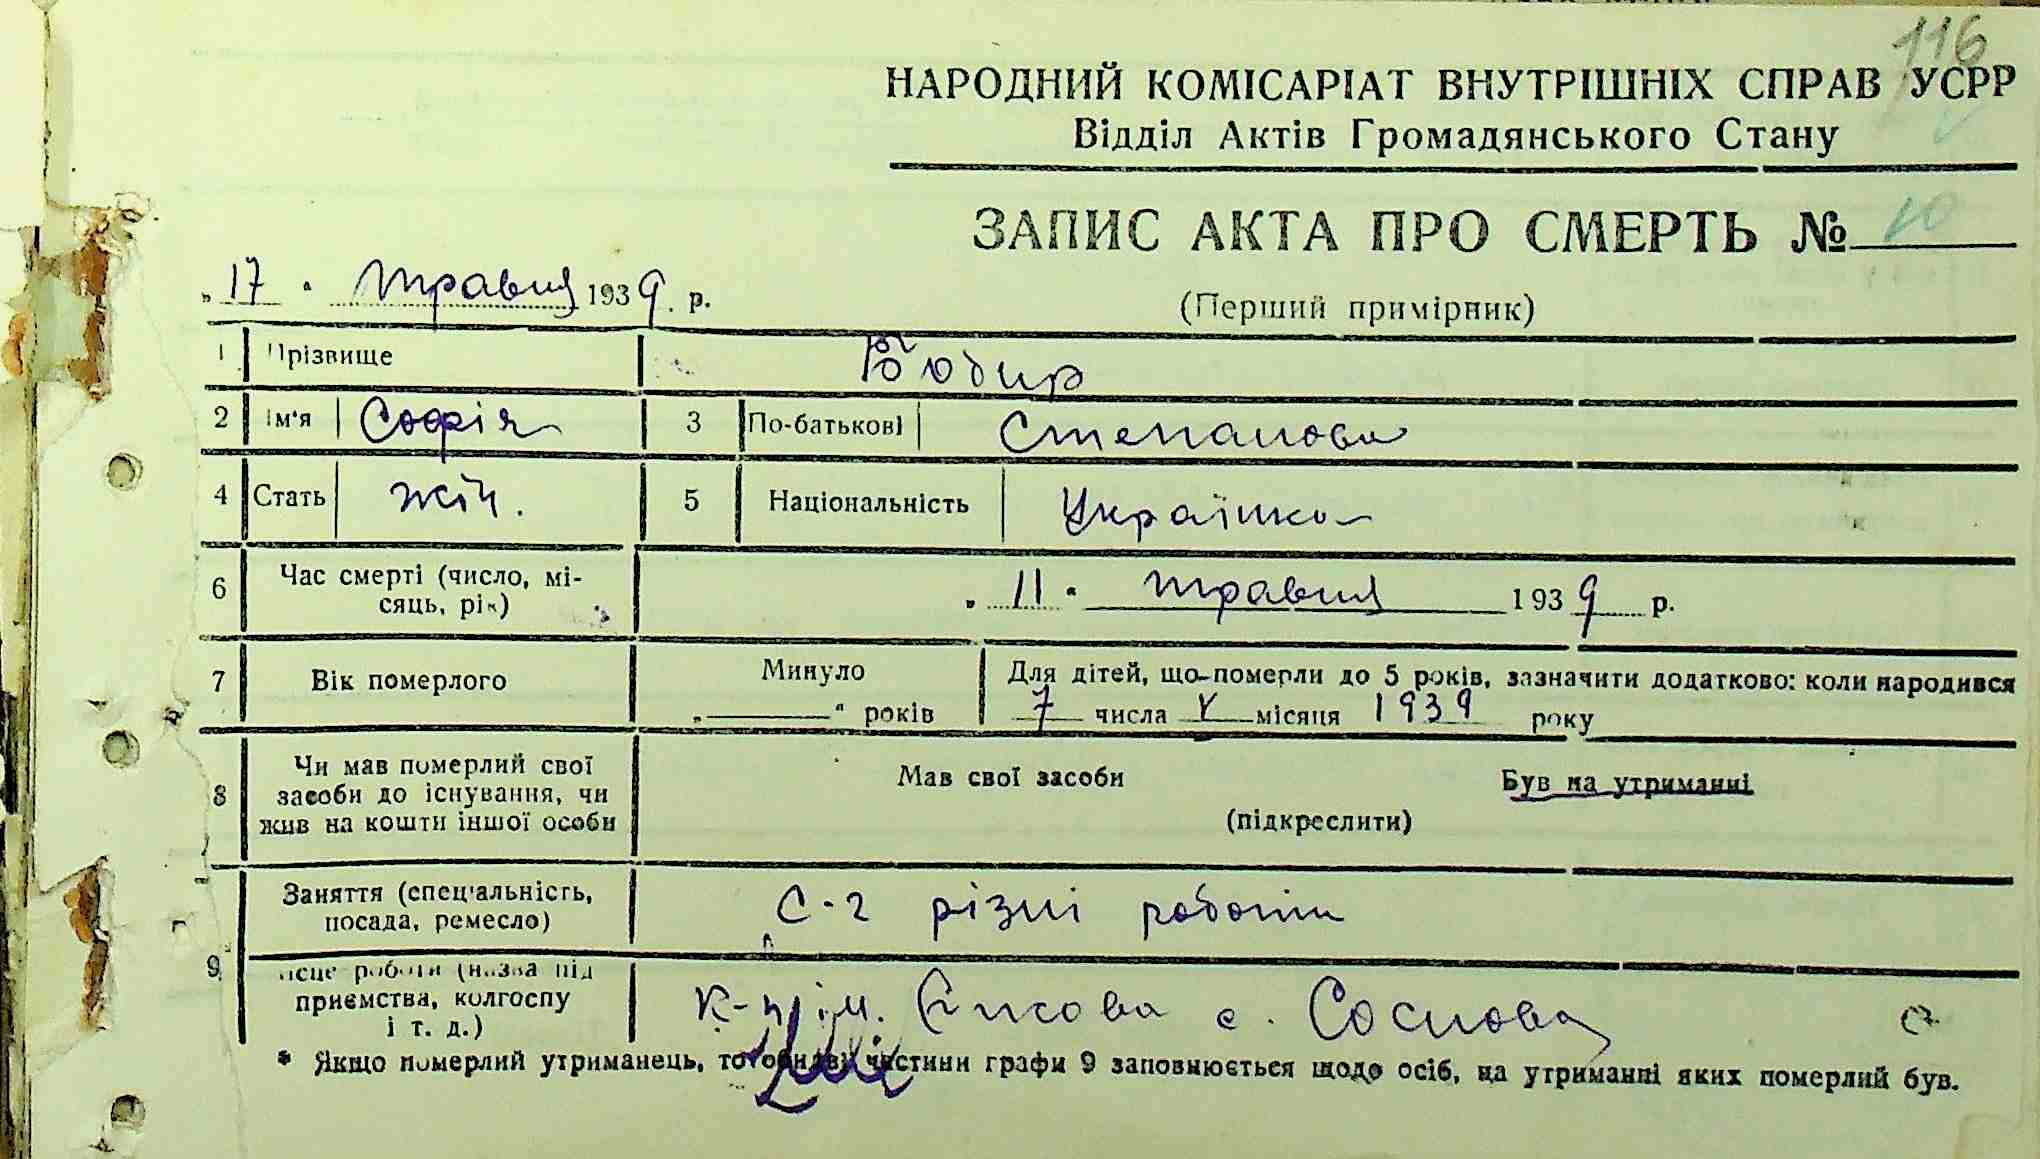 116
НАРОДНИЙ КОМІСАРІАТ ВНУТРІШНІХ СПРАВ УСРР
Відділ Актів Громадянського Стану
ЗАПИС АКТА ПРО СМЕРТЬ № 10
„17" травня 1939 р.
(Перший примірник)
1 Прізвище
2 Ім'я Софія 3 По-батькові Степанова
4 Стать жін. 5 Національність Українка
6 Час смерті (число, мі-
сяць, рік) „11" травня 1939 р.
7 Вік померлого Минуло „—" років Для дітей, що померли до 5 років, зазначити додатково: коли народився
7 числа V місяця 1939 року
8 Чи мав померлий свої
засоби до існування, чи
жив на кошти іншої особи
Мав свої засоби Був на утриманні
(підкреслити)
9 Заняття (спеціальність,
посада, ремесло) С-г різні роботи
місце роботи (назва під
приємства, колгоспу
і т. д.) К-п ім. с. Соснова
* Якщо померлий утриманець, то обидві частини графи 9 заповнюється щодо осіб, на утриманні яких померлий був.